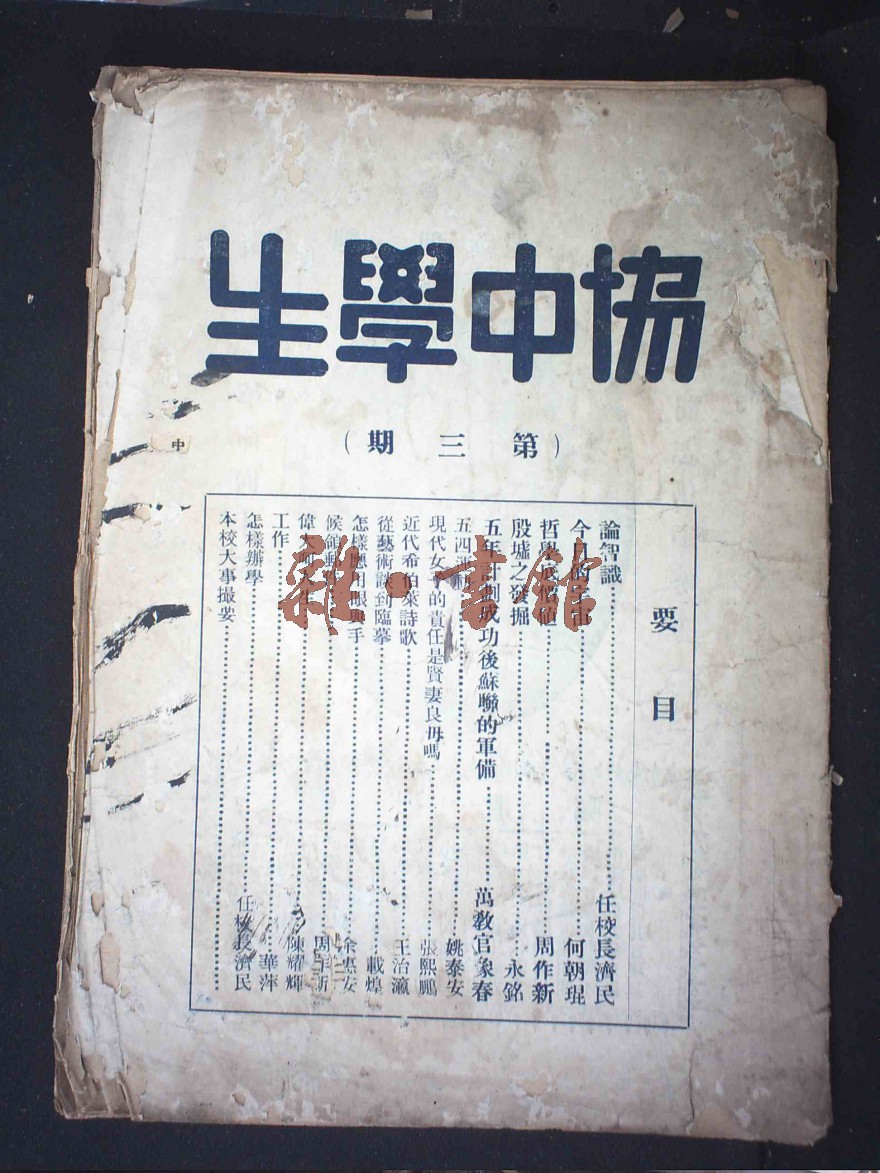 協中學生
(第三期)
中
要目
論智識 任校長濟民
今日的宇宙 何朝琨
哲學底價值 周作新
殷墟之發掘 永銘
五年計劃成功後蘇聯的軍備 萬教官象春
五四 姚泰安
現代女子的責任是賢妻良母嗎 張熙鵬
近代希伯萊詩歌 王治瀛
從藝術談到臨摹 載煌
怎樣應用眼與手 余惠安
候 周作新
偉大 人生 陳耀輝
工作 華萍
怎樣辦學 任校長濟民
本校大事撮要
雜·書館